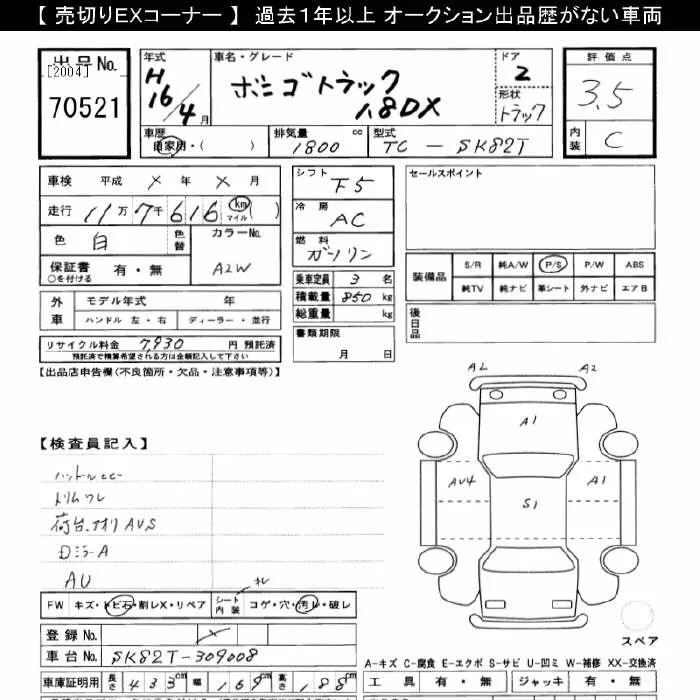 【 売切りEXコーナー 】 過去1年以上 オークション出品歴がない車両
出品No.
[2004]
70521
年式
H
16/4月
車名・グレード
ボンゴトラック
1.8DX
ドア
2
形状
トラック
評価点
3.5
内装
C
車歴
自家用・( )
排気量 cc
1800
型式
TC - SK82T
車検 平成 × 年 × 月
走行 11万 7千 616 km マイル ( )
色 白
色替
カラーNo.
A2W
保証書 有・無
○を付ける
外車
モデル年式 年
ハンドル 左・右 ディーラー・並行
リサイクル料金 7,930 円 預託済
預託済で積算希望される方は金額記入して下さい
シフト F5
冷房 AC
燃料 ガソリン
乗車定員 3 名
積載量 850 kg
総重量 kg
書類期限
月 日
セールスポイント
装備品
S/R 純A/W P/S P/W ABS
純TV 純ナビ 革シート 外ナビ エアB
後日品
【出品店申告欄(不良箇所・欠品・注意事項等)】
【検査員記入】
トリムワレ
荷台、アオリAUS
ロミラーA
AU
FW キズ・トビ石・割レX・リペア
シート内装 コゲ・穴・汚レ・破レ
登録No. ×
車台No. SK82T-309008
車庫証明用 長さ 433cm 幅 169cm 高さ 188cm
A2
A1
AU4
S1
A1
スペア
A-キズ C-腐食 E-エクボ S-サビ U-凹ミ W-補修 XX-交換済
工具 有・無 ジャッキ 有・無